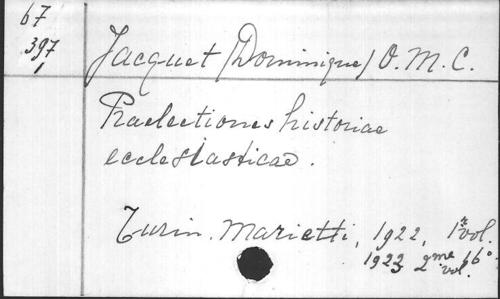 67
397
1
Jacquet (Dominique) O.M.C.
Praelectiones historiae
ecclesiasticae.
Turin. Marietti, 1922, 1r vol.
1923 2me vol. 16°.